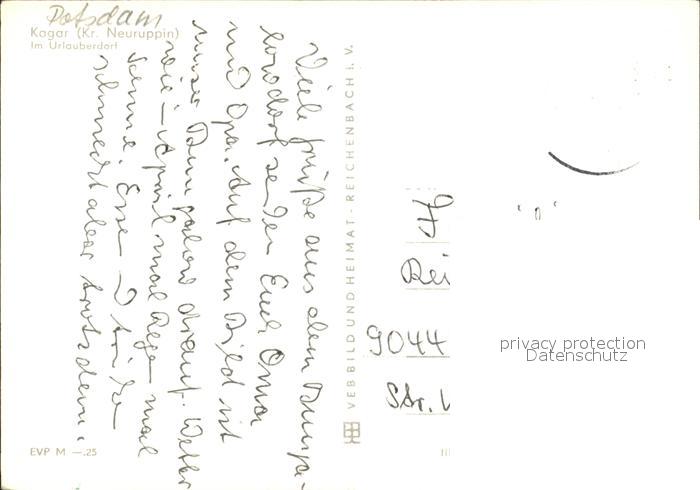 Potsdam
Kagar (Kr. Neuruppin)
Im Urlauberdorf
Viele Grüße aus dem Bunga-
lowdorf senden Euch Oma
und Opa. Auf dem Bild ist
unser Bungalow drauf. Wetter
wie April mal Regen mal
Sonne. Essen Trinken
schmeckt aber trotzdem.
VEB BILD UND HEIMAT · REICHENBACH I. V.
Rei
9044
Str.
privacy protection
Datenschutz
EVP M —.25